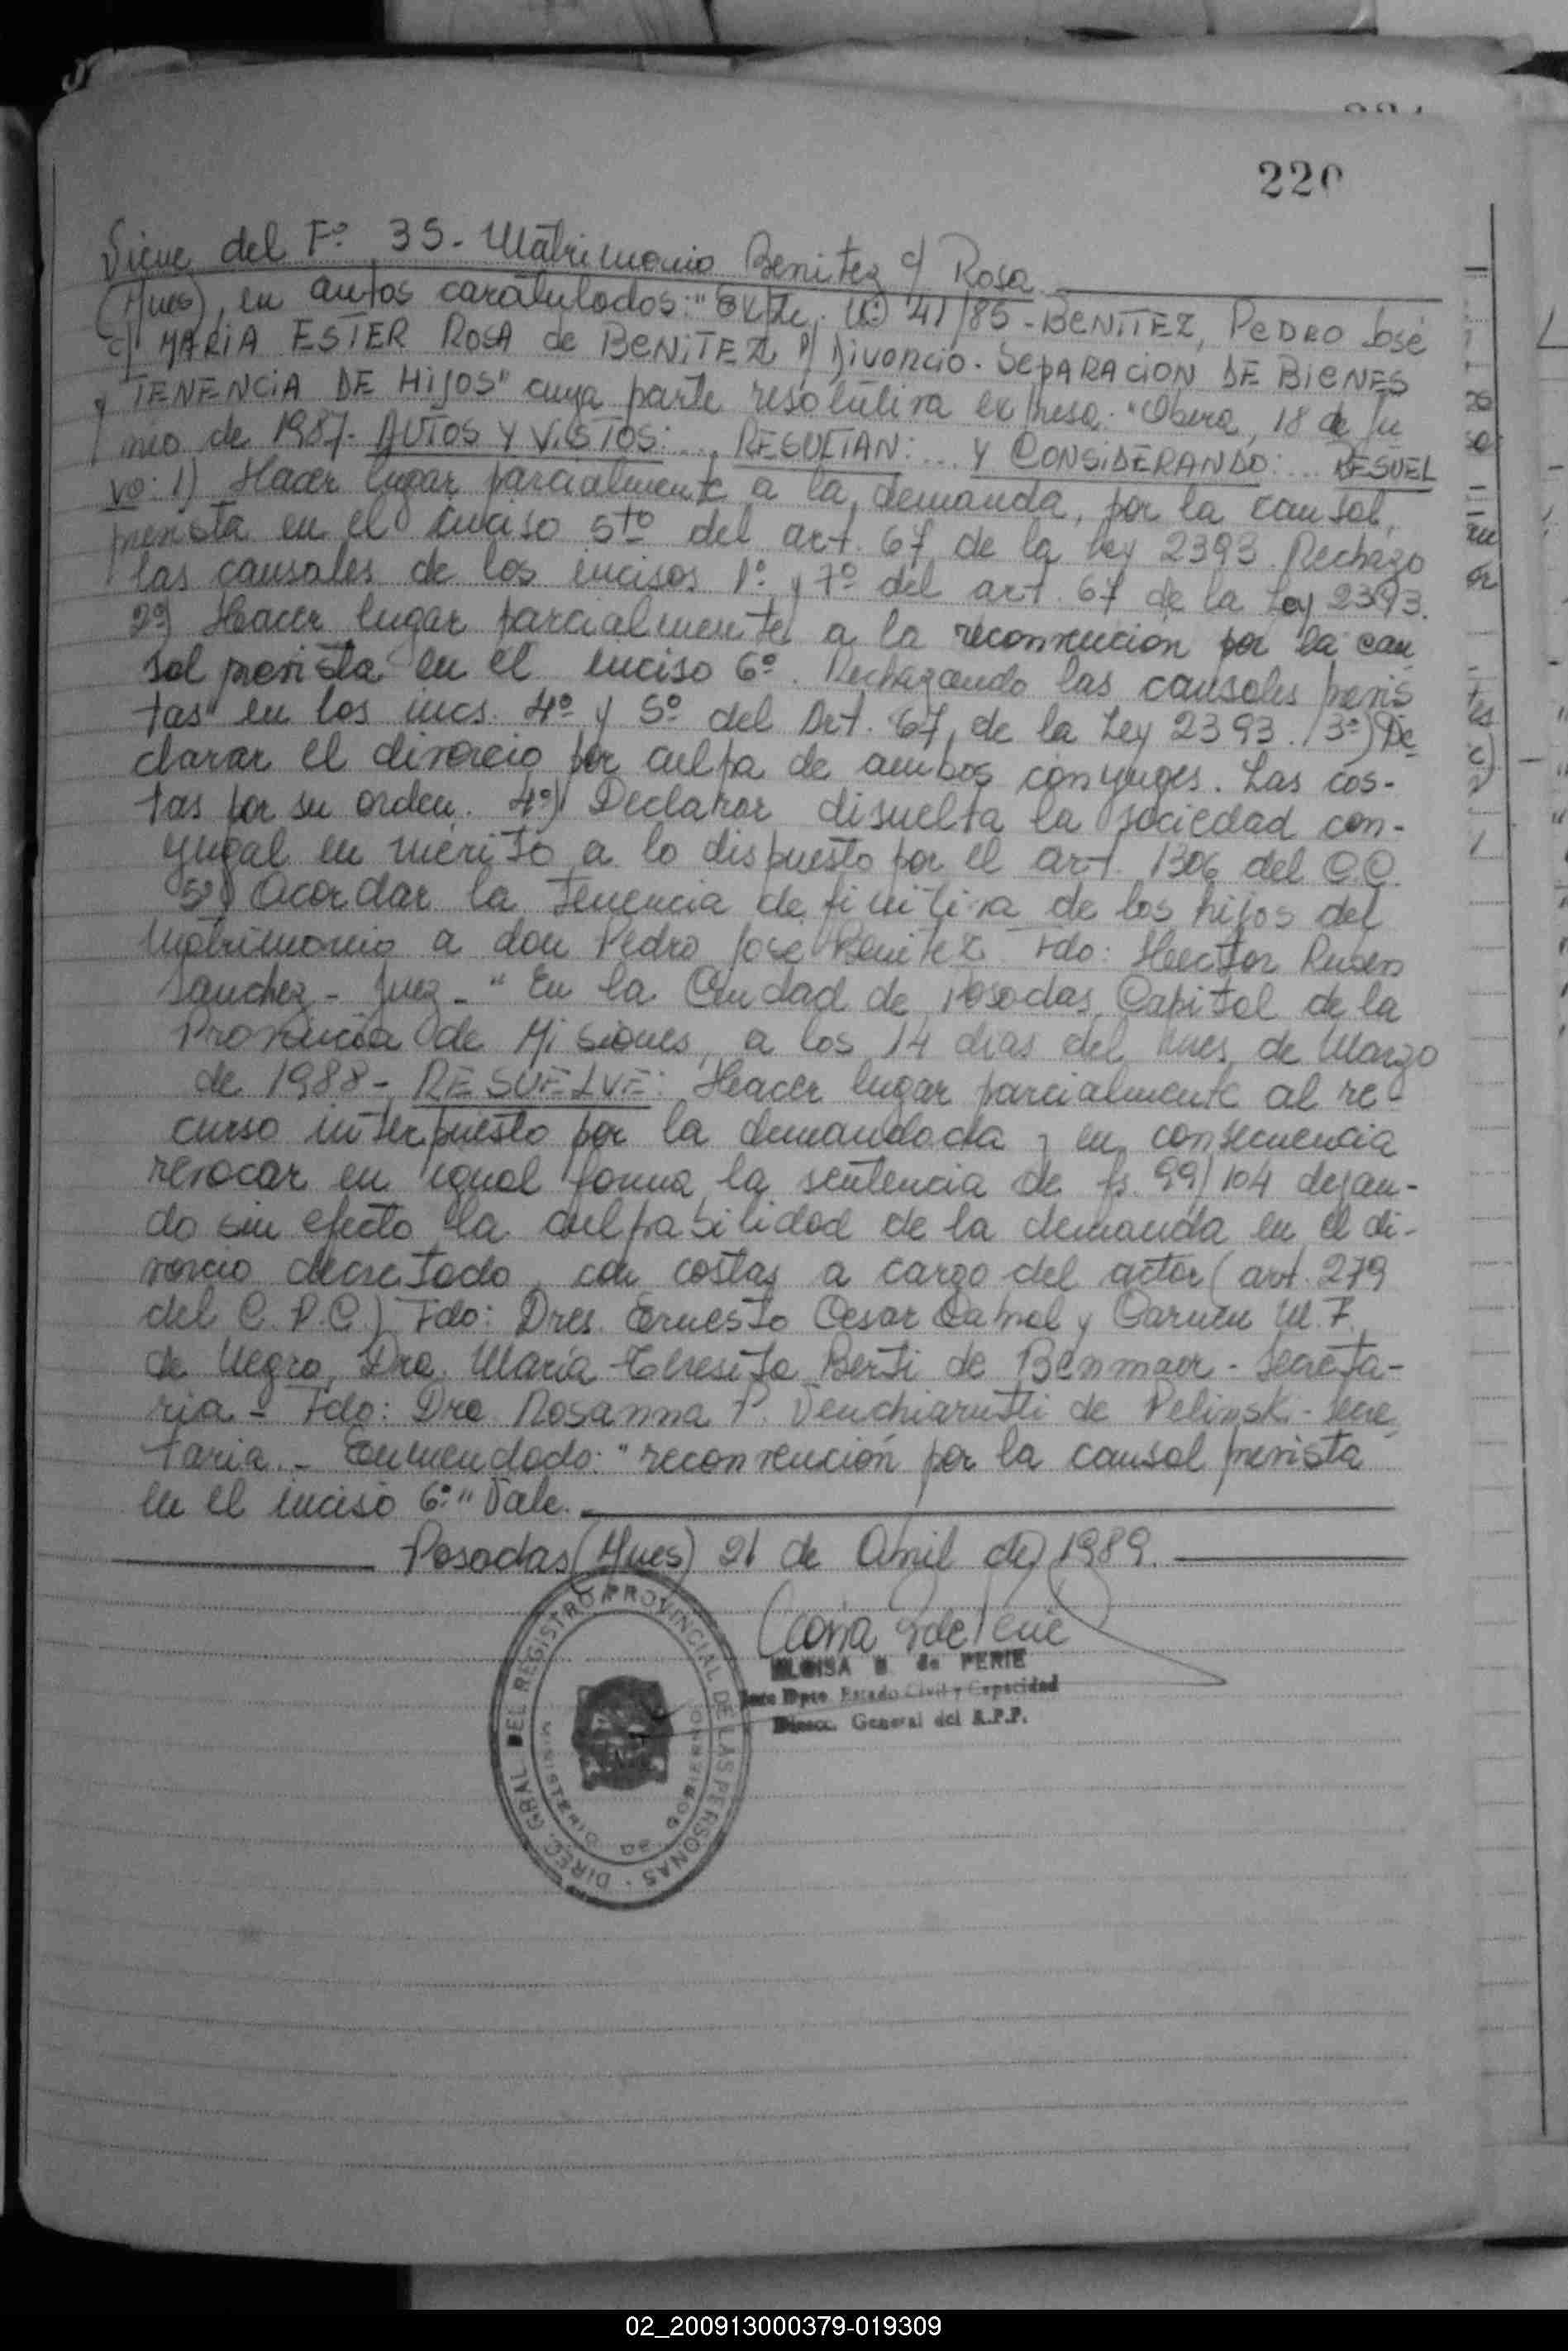 220
Viene del Fº 35 - Matrimonio Benitez c/ Rosa
(Mnes), en autos caratulados: "Expte. Nº 41/85 - BENITEZ, PEDRO José
c/ MARIA ESTER ROSA de BENITEZ s/ Divorcio - SEPARACION DE BIENES
y TENENCIA DE HIJOS" cuya parte resolutiva expresa: "Obera, 18 de Ju
nio de 1987 - AUTOS Y VISTOS: ... RESULTAN: ... Y CONSIDERANDO: ... RESUEL
VO: 1) Hacer lugar parcialmente a la demanda, por la causal,
prevista en el inciso 5to del art. 67 de la Ley 2393. Rechazo
las causales de los incisos 1º y 7º del art. 67 de la Ley 2393.
2º) Hacer lugar parcialmente a la reconvención por la cau
sal prevista en el inciso 6º. Rechazando las causales previs
tas en los incs. 4º y 5º del Art. 67, de la Ley 2393. 3º) De-
clarar el divorcio por culpa de ambos conyuges. Las cos-
tas por su orden. 4º) Declarar disuelta la sociedad con-
yugal en merito a lo dispuesto por el art. 1306 del C.C.
5º) Acordar la tenencia definitiva de los hijos del
Matrimonio a don Pedro José Benitez. Fdo: Hector Ruben
Sanchez - Juez - "En la Ciudad de Posadas, Capital de la
Provincia de Misiones, a los 14 dias del mes de Marzo
de 1988 - RESUELVE: Hacer lugar parcialmente al re-
curso interpuesto por la demandada y en consecuencia
revocar en igual forma la sentencia de fs. 99/104 dejan-
do sin efecto la culpabilidad de la demanda en el di-
vorcio decretado, con costas a cargo del actor (art. 279
del C.P.C.) Fdo: Dres. Ernesto Cesar Cabral y Carmen M. F.
de Negro, Dra. María Teresita Berti de Benmaor - Secreta-
ria - Fdo: Dra Rosanna P. Venchiarutti de Pelinski - Secre
taria. - Enmendado: "reconvención por la causal prevista
en el inciso 6º" Vale.
Posadas (Mnes) 21 de Abril de 1989.
ELOISA de PERIE
Jefe Dpto. Estado Civil y Capacidad
Direcc. General del R.P.P.
DIREC. GRAL DEL REGISTRO PROVINCIAL DE LAS PERSONAS
MINISTERIO DE GOBIERNO
02_200913000379-019309